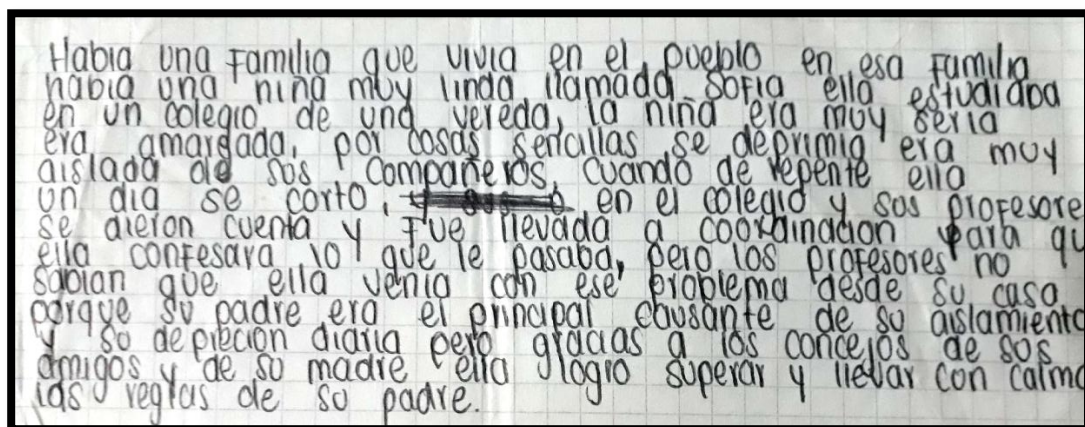 Habia una Familia que vivia en el pueblo en esa Familia
habia una niña muy linda llamada Sofia ella estudiaba
en un colegio de una vereda, la niña era muy seria
era amargada, por cosas sencillas se deprimia era muy
aislada de sus compañeros, cuando de repente ella
un dia se corto, en el colegio y sus profesore
se dieron cuenta y Fue llevada a coordinacion para qu
ella confesara lo que le pasaba, pero los profesores no
sabian que ella venia con ese problema desde su casa
porque su padre era el principal causante de su aislamiento
y su deprecion diaria pero gracias a los concejos de sus
amigos y de su madre ella logro superar y llevar con calma
las reglas de su padre.